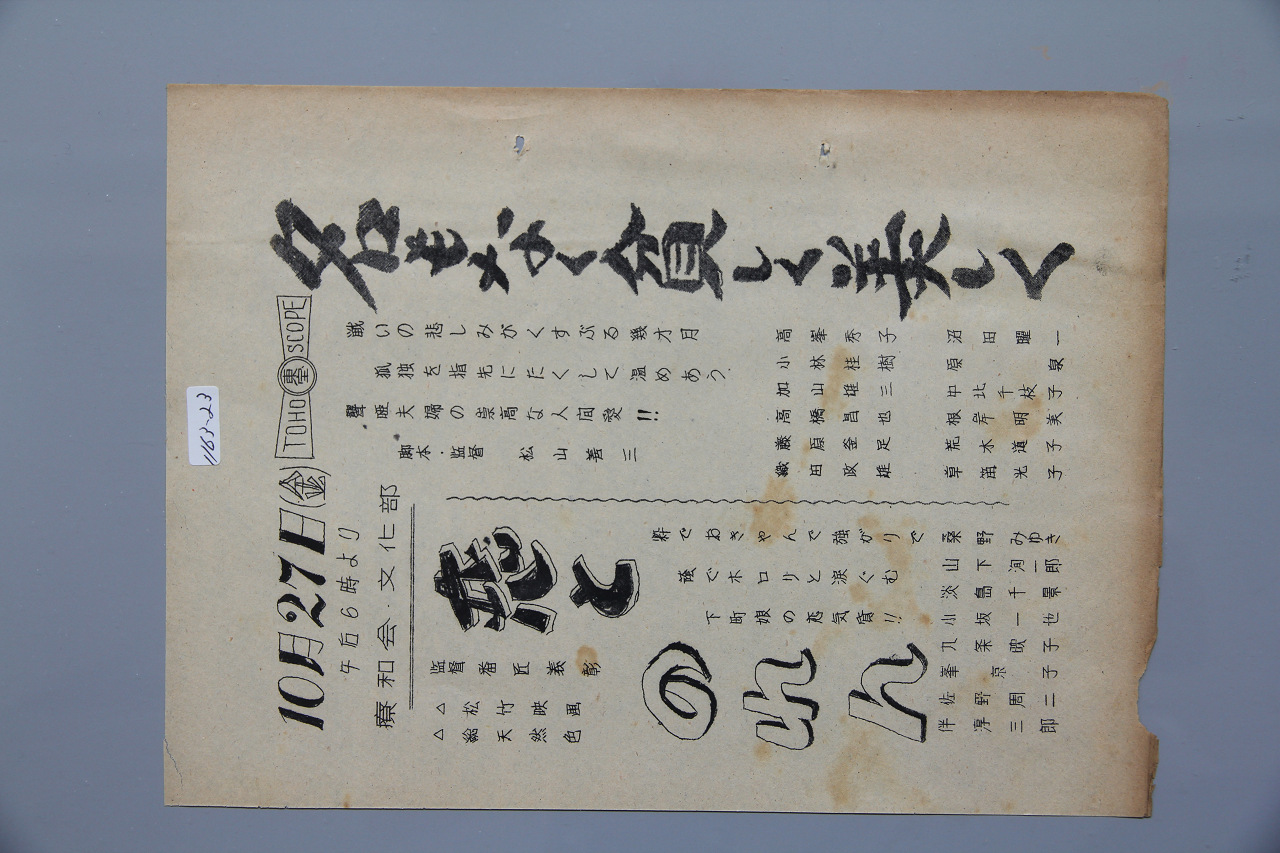 1163-23
10月27日(金)
午后6時より
療和会・文化部
TOHO 東宝 SCOPE
名もなく貧しく美しく
戦いの悲しみがくすぶる幾才月
孤独を指先にたくして温めあう
聾唖夫婦の崇高な人间愛!!
脚本・監督 松山善三
高峯秀子
小林桂樹
加山雄三
高橋昌也
藤原釜足
織田政雄
沼田曜一
原泉
中北千枝子
根岸明美
荒木道子
草笛光子
恋とのれん
粋でおきゃんで強がりで
蔭でホロリと涙ぐむ
下町娘の恋気質!!
監督 番匠義彰
△松竹映画
△総天然色
桑野みゆき
山下洵一郎
淡島千景
小坂一也
九条歌子
峯京子
佐野周二
伴淳三郎